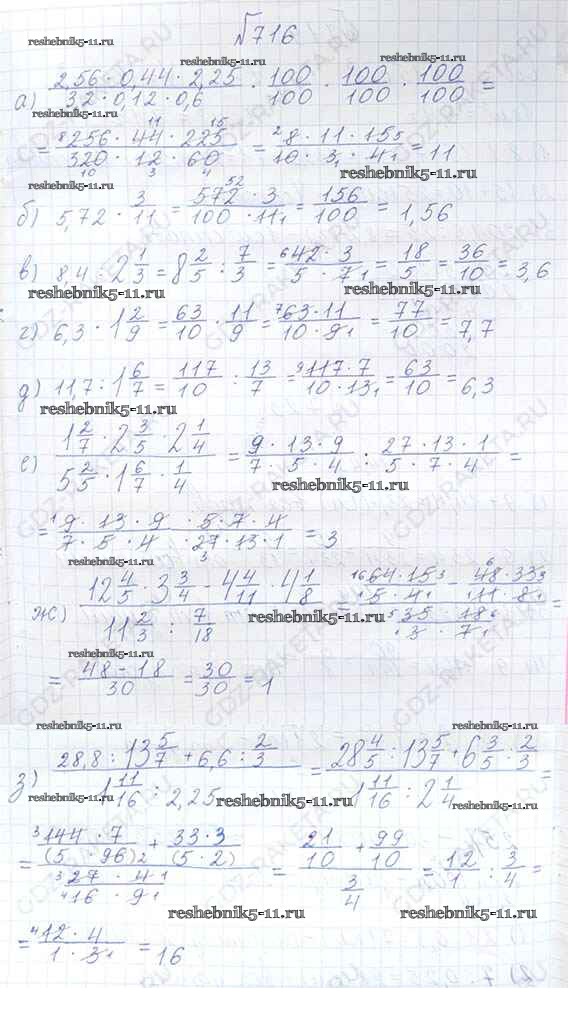 №716
reshebnik5-11.ru reshebnik5-11.ru
а) 2,56 · 0,44 · 2,25 / 3,2 · 0,12 · 0,6 · 100/100 · 100/100 · 100/100 =
reshebnik5-11.ru
= 256 · 44 · 225 / 320 · 12 · 60 = 8 · 11 · 15 / 10 · 3 · 4 = 11
reshebnik5-11.ru
reshebnik5-11.ru
б) 5,72 · 3/11 = 572 · 3 / 100 · 11 = 156/100 = 1,56
в) 8,4 : 2 1/3 = 8 2/5 : 7/3 = 42 · 3 / 5 · 7 = 18/5 = 36/10 = 3,6
reshebnik5-11.ru reshebnik5-11.ru
г) 6,3 · 1 2/9 = 63/10 · 11/9 = 63 · 11 / 10 · 9 = 77/10 = 7,7
д) 11,7 : 1 6/7 = 117/10 : 13/7 = 117 · 7 / 10 · 13 = 63/10 = 6,3
reshebnik5-11.ru
е) 1 2/7 · 2 3/5 · 2 1/4 / 5 2/5 · 1 6/7 · 1/4 = 9 · 13 · 9 / 7 · 5 · 4 : 27 · 13 · 1 / 5 · 7 · 4 =
reshebnik5-11.ru
= 9 · 13 · 9 · 5 · 7 · 4 / 7 · 5 · 4 · 27 · 13 · 1 = 3
ж) 12 4/5 · 3 3/4 - 4 4/11 · 4 1/8 / 11 2/3 : 7/18 = 64 · 15 / 5 · 4 - 48 · 33 / 11 · 8 / 35 · 18 / 3 · 7 =
reshebnik5-11.ru
reshebnik5-11.ru
= 48 - 18 / 30 = 30/30 = 1
reshebnik5-11.ru reshebnik5-11.ru
з) 28,8 : 13 5/7 + 6,6 : 2/3 / 1 11/16 : 2,25 = 28 4/5 : 13 5/7 + 6 3/5 : 2/3 / 1 11/16 : 2 1/4 =
reshebnik5-11.ru reshebnik5-11.ru reshebnik5-11.ru
= 144 · 7 / (5 · 96) + 33 · 3 / (5 · 2) / 27 · 4 / 16 · 9 = 21/10 + 99/10 / 3/4 = 12/1 : 3/4 =
reshebnik5-11.ru reshebnik5-11.ru
= 12 · 4 / 1 · 3 = 16
GDZ-RAKETA.RU